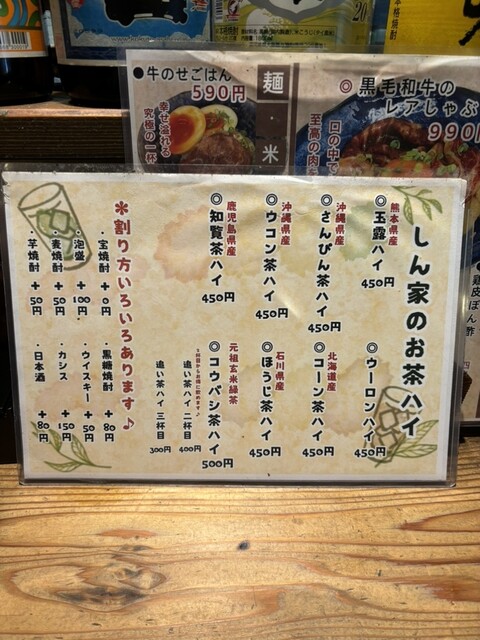 ●牛のせごはん
590円
幸せ溢れる
究極の一杯
麺・米
◎黒毛和牛の
レアしゃぶ
990円
口の中で
至高の肉を
本格焼酎
しん家のお茶ハイ
熊本県産
◎玉露ハイ
450円
沖縄県産
◎さんぴん茶ハイ
450円
沖縄県産
◎ウコン茶ハイ
450円
鹿児島県産
◎知覧茶ハイ
450円
◎ウーロンハイ
450円
北海道産
◎コーン茶ハイ
450円
石川県産
◎ほうじ茶ハイ
450円
元祖玄米緑茶
◎コウバシ茶ハイ
500円
追い茶ハイ 二杯目 400円
追い茶ハイ 三杯目 300円
＊割り方いろいろあります♪
・宝焼酎 +0円
・泡盛 +100円
・麦焼酎 +50円
・芋焼酎 +50円
・黒糖焼酎 +80円
・ウイスキー +50円
・カシス +150円
・日本酒 +80円
鶏皮ぽん酢